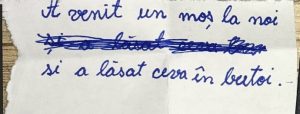 A venit un moș la noi
și a lăsat ceva
și a lăsat ceva în butoi.